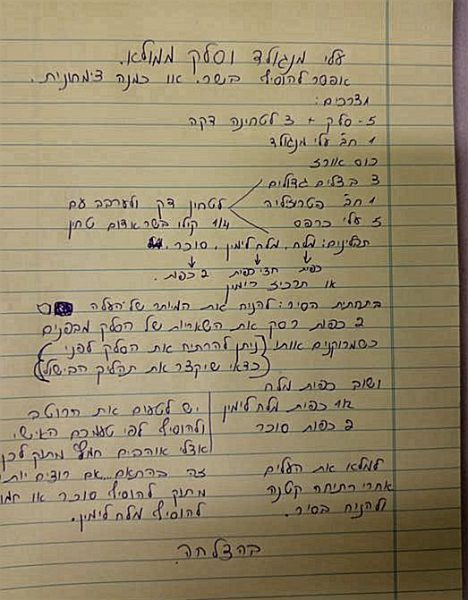 עלי מנגולד וסלק ממולא.
אפשר להוסיף בשר. או כמנה צימחונית.
מצרכים:
5 - סלק + 3 לטחינה דקה
1 חב' עלי מנגולד
כוס אורז
3 בצלים גדולים
1 חב' פטרוזליה
5 עלי כרפס
לטחון דק ולערבב עם
1/4 קילו בשר אדום טחון
תבלינים: מלח, מלח לימון, סוכר.
כפית חצי כפית 2 כפות.
או תרכיז לימון
בתחתית הסיר: להניח את המיתר של העלה
2 כפות רסק את השאריות של הסלק מבפנים
כשמרוקנים אותו (ניתן להרתיח את הסלק לפני
כדאי שיקצר את תהליך הבישול)
ושוב כפית מלח
1/2 כפית מלח לימון
2 כפות סוכר
למלא את העלים
אחרי רתיחה קטנה
ולהניח בסיר.
יש לטעום את הרוטב
ולהוסיף לפי טעמכם האישי
אצלי אוהבים חמוץ מתוק לכן
זה בהתאם.. אם רוצים יותר
מתוק להוסיף סוכר או חמוץ
להוסיף מלח לימון.
בהצלחה.